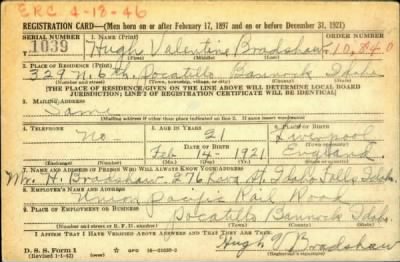 ERC 4-18-46
REGISTRATION CARD—(Men born on or after February 17, 1897 and on or before December 31, 1921)
SERIAL NUMBER 1. NAME (Print) ORDER NUMBER
1039 Hugh Valentine Bradshaw 10,840
(First) (Middle) (Last)
2. PLACE OF RESIDENCE (Print)
329 N. 6th. Pocatello Bannock Idaho
(Number and street) (Town, township, village, or city) (County) (State)
[THE PLACE OF RESIDENCE GIVEN ON THE LINE ABOVE WILL DETERMINE LOCAL BOARD
JURISDICTION; LINE 2 OF REGISTRATION CERTIFICATE WILL BE IDENTICAL]
3. MAILING ADDRESS
Same
[Mailing address if other than place indicated on line 2. If same insert word same]
4. TELEPHONE 5. AGE IN YEARS 6. PLACE OF BIRTH
No 21 Liverpool
DATE OF BIRTH (Town or county)
Feb 14 1921 England
(Exchange) (Number) (Mo.) (Day) (Yr.) (State or country)
7. NAME AND ADDRESS OF PERSON WHO WILL ALWAYS KNOW YOUR ADDRESS
Mr. H. Bradshaw - 276 Lava St. Idaho Falls Idaho.
8. EMPLOYER'S NAME AND ADDRESS
Union Pacific Rail Road
9. PLACE OF EMPLOYMENT OR BUSINESS
Pocatello Bannock Idaho.
(Number and street or R. F. D. number) (Town) (County) (State)
I AFFIRM THAT I HAVE VERIFIED ABOVE ANSWERS AND THAT THEY ARE TRUE.
D. S. S. Form 1
(Revised 1-1-42) (over)
Hugh V Bradshaw